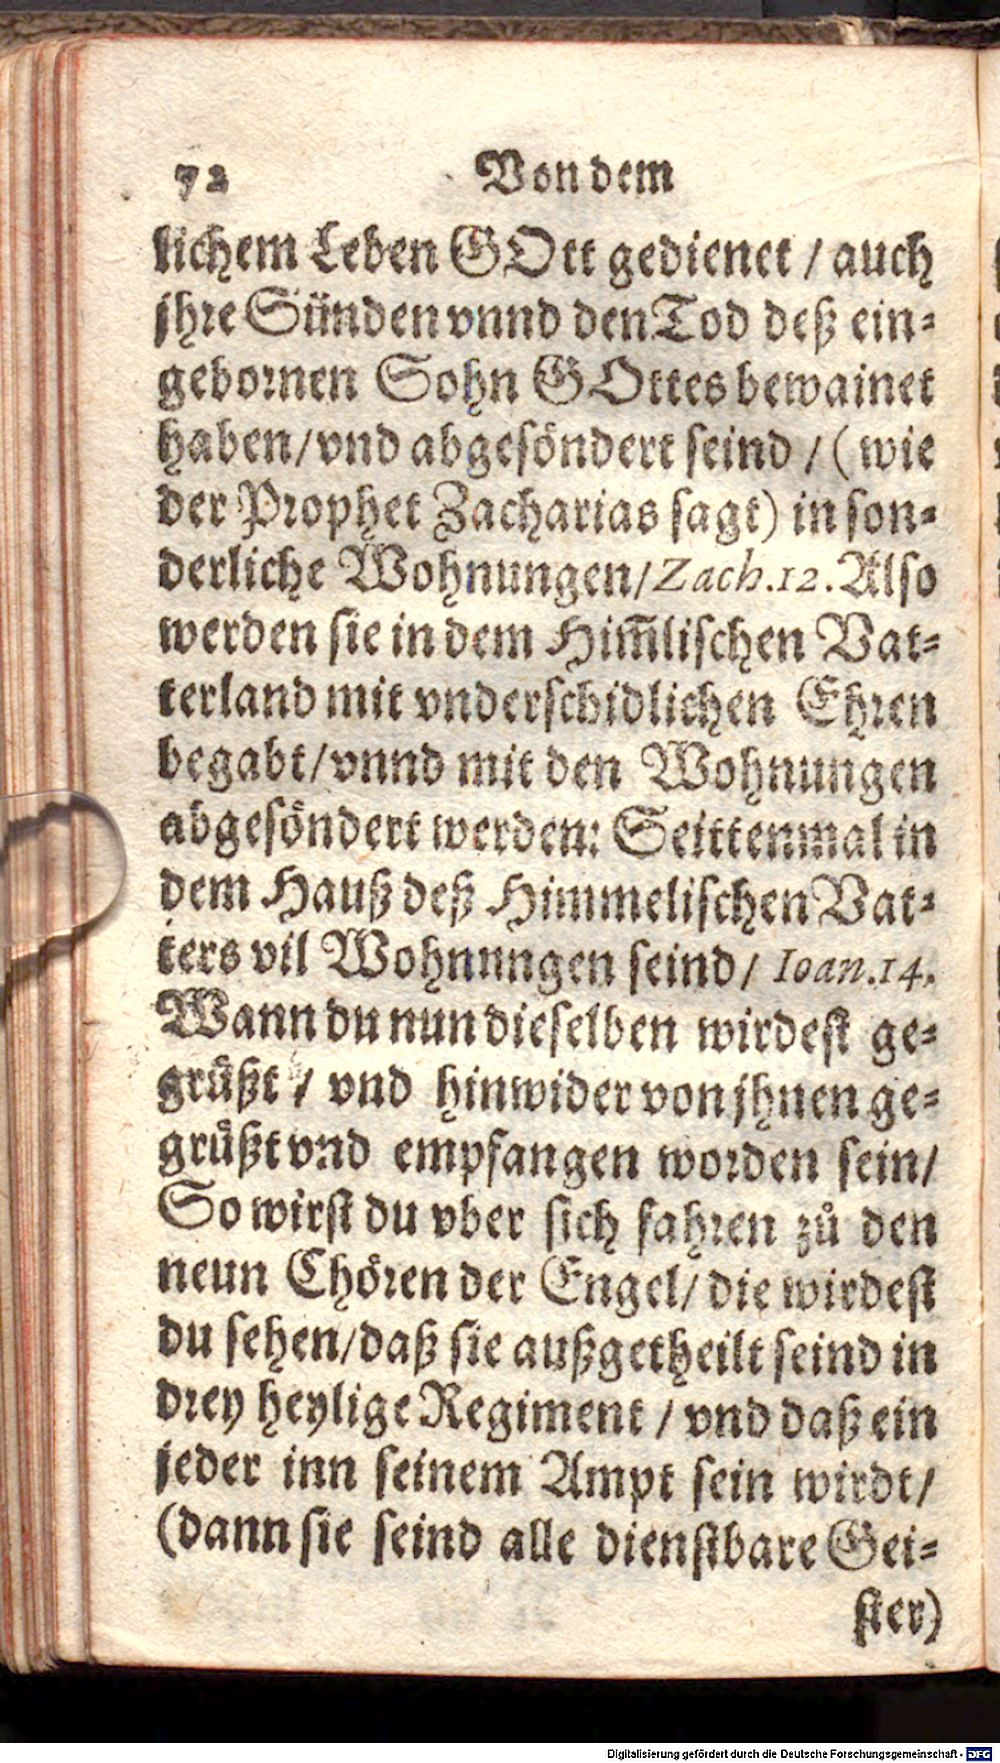 72 Von dem
lichem Leben GOtt gedienet / auch
jhre Sünden vnnd den Tod deß ein⸗
gebornen Sohn GOttes bewainet
haben / vnd abgesöndert seind / (wie
der Prophet Zacharias sagt) in son⸗
derliche Wohnungen / Zach. 12. Also
werden sie in dem Him̃lischen Vat⸗
terland mit vnderschidlichen Ehren
begabt / vnnd mit den Wohnungen
abgesöndert werden: Seittenmal in
dem Hauß deß Himmelischen Vat⸗
ters vil Wohnungen seind / Ioan. 14.
Wann du nun dieselben wirdest ge⸗
grüßt / vnd hinwider von jhnen ge⸗
grüßt vnd empfangen worden sein /
So wirst du vber sich fahren zů den
neun Chören der Engel / die wirdest
du sehen / daß sie außgetheilt seind in
drey heylige Regiment / vnd daß ein
jeder inn seinem Ampt sein wirdt /
(dann sie seind alle dienstbare Gei⸗
ster)
Digitalisierung gefördert durch die Deutsche Forschungsgemeinschaft - DFG